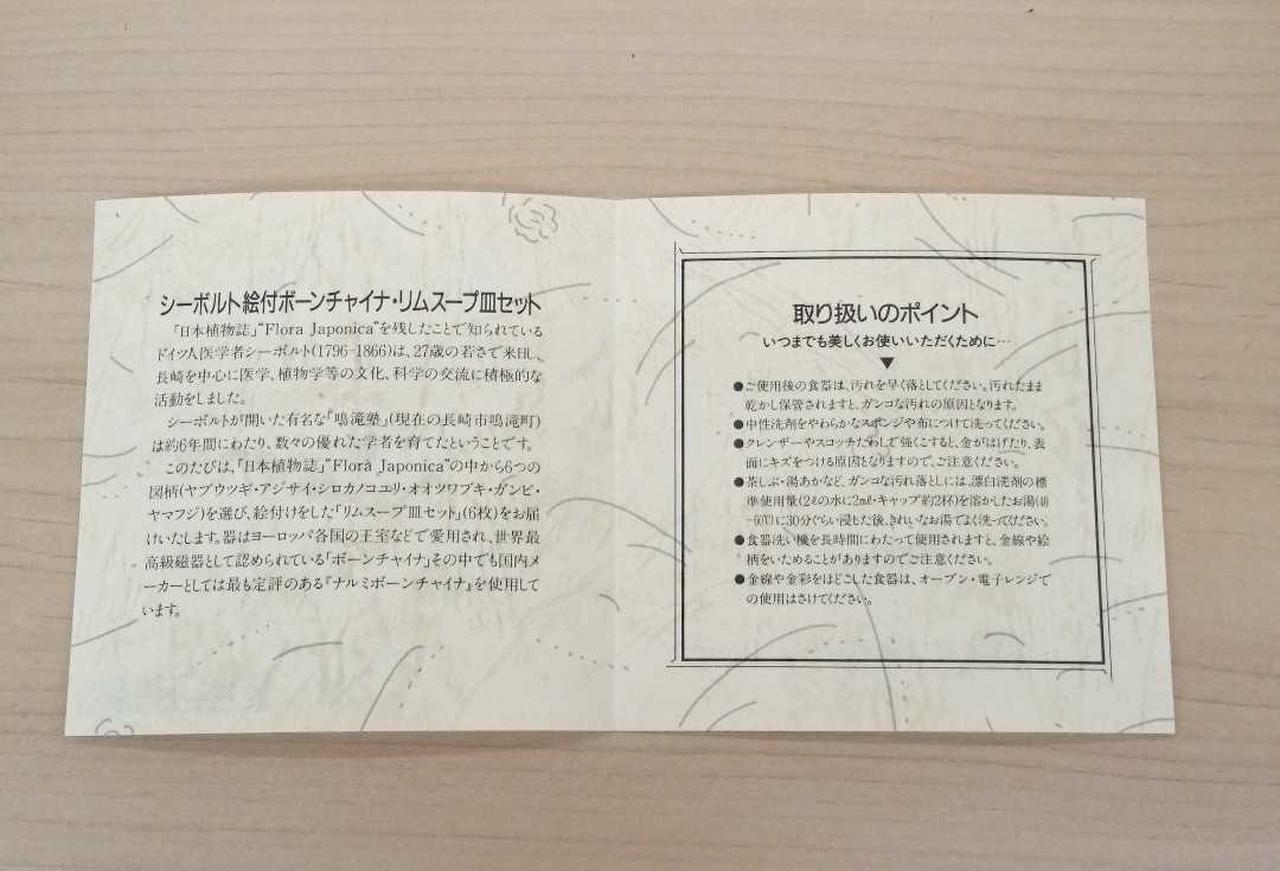 シーボルト絵付ボーンチャイナ・リムスープ皿セット
「日本植物誌」“Flora Japonica”を残したことで知られている
ドイツ人医学者シーボルト(1796-1866)は、27歳の若さで来日し、
長崎を中心に医学、植物学等の文化、科学の交流に積極的な
活動をしました。
シーボルトが開いた有名な「鳴滝塾」(現在の長崎市鳴滝町)
は約6年間にわたり、数々の優れた学者を育てたということです。
このたびは、「日本植物誌」“Flora Japonica”の中から6つの
図柄(ヤブウツギ・アジサイ・シロカノコユリ・オオツワブキ・ガンピ・
ヤマフジ)を選び、絵付けをした「リムスープ皿セット」(6枚)をお届
けいたします。器はヨーロッパ各国の王室などで愛用され、世界最
高級磁器として認められている「ボーンチャイナ」その中でも国内メ
ーカーとしては最も定評のある『ナルミボーンチャイナ』を使用して
います。
取り扱いのポイント
いつまでも美しくお使いいただくために…
▼
●ご使用後の食器は、汚れを早く落としてください。汚れたまま
乾かし保管されますと、ガンコな汚れの原因となります。
●中性洗剤をやわらかなスポンジや布につけて洗ってください。
●クレンザーやスコッチたわしで強くこすると、金がはげたり、表
面にキズをつける原因となりますので、ご注意ください。
●茶しぶ・湯あかなど、ガンコな汚れ落としには、漂白洗剤の標
準使用量(2ℓの水に2mℓ・キャップ約2杯)を溶かしたお湯(40
-60℃)に30分ぐらい浸した後、きれいなお湯でよく洗ってください。
●食器洗い機を長時間にわたって使用されますと、金線や絵
柄をいためることがありますのでご注意ください。
●金線や金彩をほどこした食器は、オーブン・電子レンジで
の使用はさけてください。